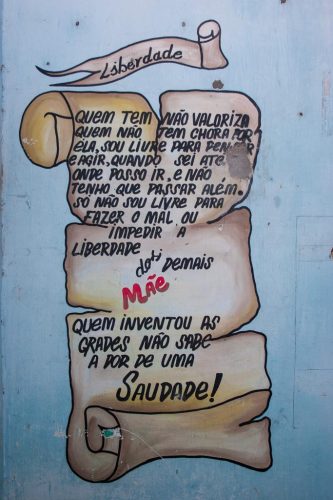 Liberdade
QUEM TEM NÃO VALORIZA
QUEM NÃO TEM CHORA POR
ELA, SOU LIVRE PARA PENSAR
E AGIR, QUANDO SEI ATE
ONDE POSSO IR, E NÃO
TENHO QUE PASSAR ALEM.
SÓ NÃO SOU LIVRE PARA
FAZER O MAL OU
IMPEDIR A
LIBERDADE
DEMAIS
MÃE
QUEM INVENTOU AS
GRADES NÃO SABE
A DOR DE UMA
SAUDADE!